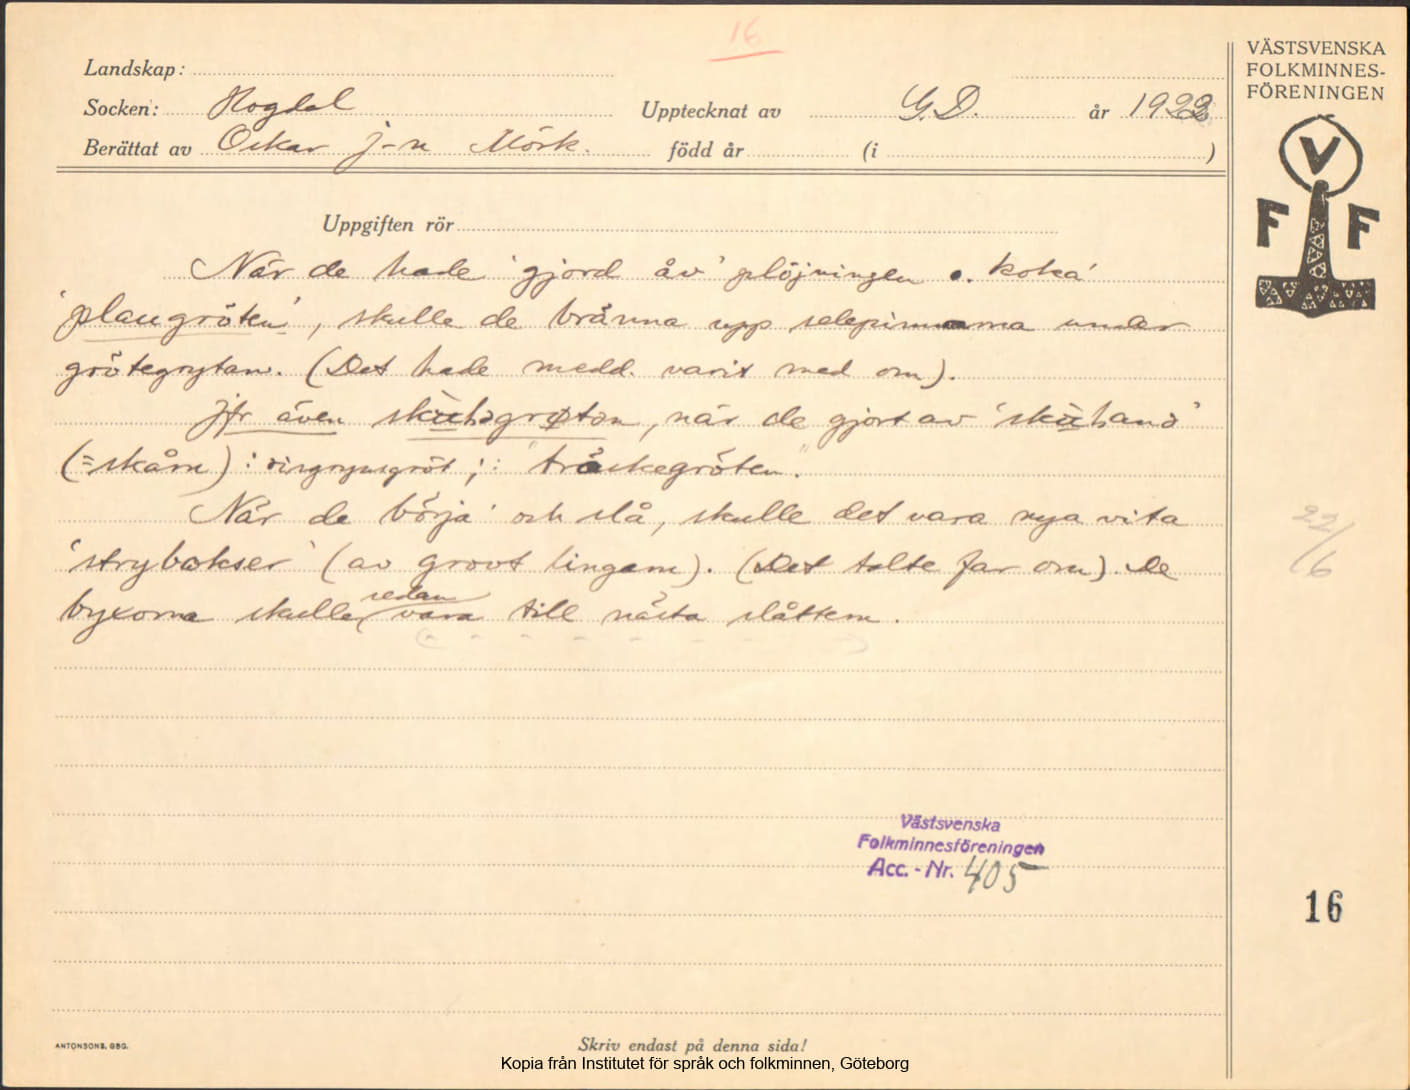 16
VÄSTSVENSKA
FOLKMINNES-
FÖRENINGEN
V
F F
Landskap:
Socken: Hogdal
Upptecknat av G.D. år 1922
Berättat av Oskar J-n Mörk. född år (i )
Uppgiften rör
När de hade 'gjord åv' plöjningen o. koka'
'plaugröten', skulle de bränna upp selepinnarna under
grötegrytan. (Det hade medd. varit med om).
Jfr även, när de gjort av
(=skåra): risgrynsgröt; : "tröskegröten."
När de börja' och slå, skulle det vara nya vita
'strybokser' (av grovt lingarn). (Det talte far om). De
byxorna skulle sedan vara till nästa slåttern.
22/6
Västsvenska
Folkminnesföreningen
Acc. - Nr. 405
16
ANTONSONS, GBG.
Skriv endast på denna sida!
Kopia från Institutet för språk och folkminnen, Göteborg